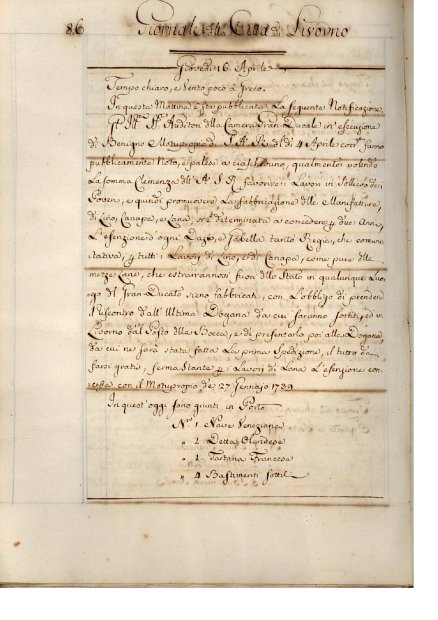 86 Giornale della Città di Livorno
Giovedì 16 Aprile
Tempo chiaro, e Vento poco à Greco.
In questa Mattina è stà pubblicata La seguente Notificazione
Gl' Ill.mi SS.ri Auditori della Camera Gran Ducale in esecuzione
di Benigno Motuproprio di S. A. R. del dì 4 Aprile corr.e fanno
pubblicamente Noto, e palese a ciascheduno, qualmente volendo
La somma Clemenza dell' A. S. R. favorire i Lavori in sollievo dei
Poveri, e quindi promuovere La fabbricazione delle Manifatture
di Lino, Canapa, e Lana, hà determinato a concedere p due Anni
L'esenzione d'ogni Dazio, e Gabella tanto Regia, che comu
nitativa, p tutti i Lavori di Lino, e di Canapa, come pure delle
mezze Lane, che estrarrannosi fuori dello Stato in qualunque Luo,
go del Gran Ducato sieno fabbricate, con L'obbligo di prendere
il riscontro dall' Ultima Dogana da cui saranno sortiti, ed in
Livorno dall' Ufizio della Bocca, e di presentarlo poi alla Dogana,
da cui ne sarà stata fatta La prima Spedizione, il tutto da
farsi gratis, ferma stante p i Lavori di Lana L'esenzione con
cessa con il Motuproprio de 27 Gennajo 1789
In quest'oggi sono giunti in Porto
N.o 1 Nave Veneziana
" 2 Detta Olandese
" 1 Tartana Francese
" Bastimenti sottili